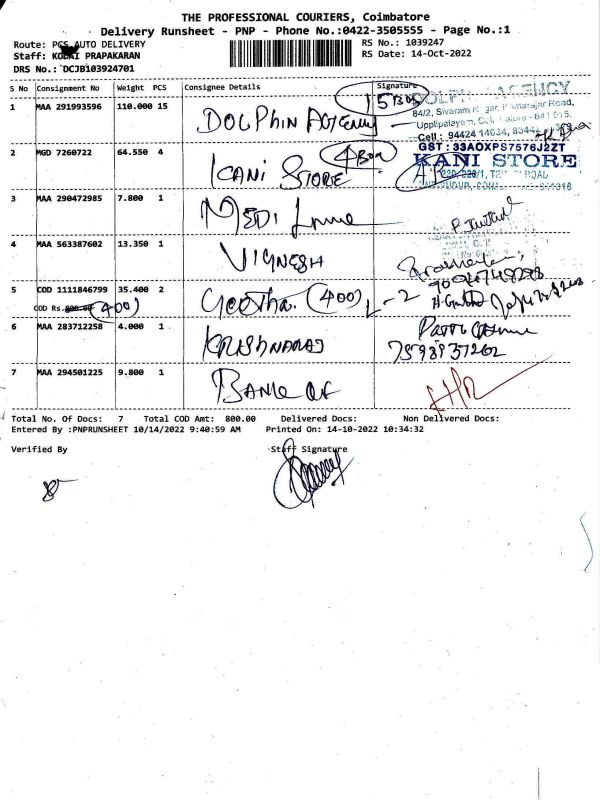 THE PROFESSIONAL COURIERS, Coimbatore
Delivery Runsheet - PNP - Phone No.:0422-3505555 - Page No.:1
Route: PCS AUTO DELIVERY
RS No.: 1039247
Staff: KODAI PRAPAKARAN
RS Date: 14-Oct-2022
DRS No.: DCJB103924701
S No Consignment No Weight PCS Consignee Details Signature
1 MAA 291993596 110.000 15 DOLPHIN AGENCY 15 Box
AGENCY
84/2, Sivaram Nagar, Kamarajar Road,
Upplipalayam, - 641 015.
Cell : 94424 14034,
GST : 33AOXPS7576J2ZT
2 MGD 7260722 64.550 4 KANI STORE 4 Box
KANI STORE
3 MAA 290472985 7.800 1 MEDI
4 MAA 563387602 13.350 1 VIGNESH
5 COD 1111846799 35.400 2 GEETHA (400) L-2
COD Rs. (400)
6 MAA 283712258 4.000 1 KRISHNARAJ
7 MAA 294501225 9.800 1 BANK OF
Total No. Of Docs: 7 Total COD Amt: 800.00 Delivered Docs: Non Delivered Docs:
Entered By :PNPRUNSHEET 10/14/2022 9:40:59 AM Printed On: 14-10-2022 10:34:32
Verified By Staff Signature